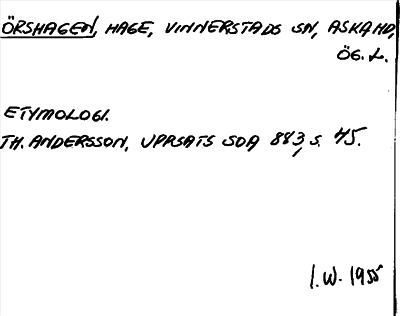 ÖRSHAGEN, HAGE, VINNERSTADS SN, ASKA HD,
ÖG. L.
ETYMOLOGI.
TH. ANDERSSON, UPPSATS SOA 883, S. 45.
I. W. 1955